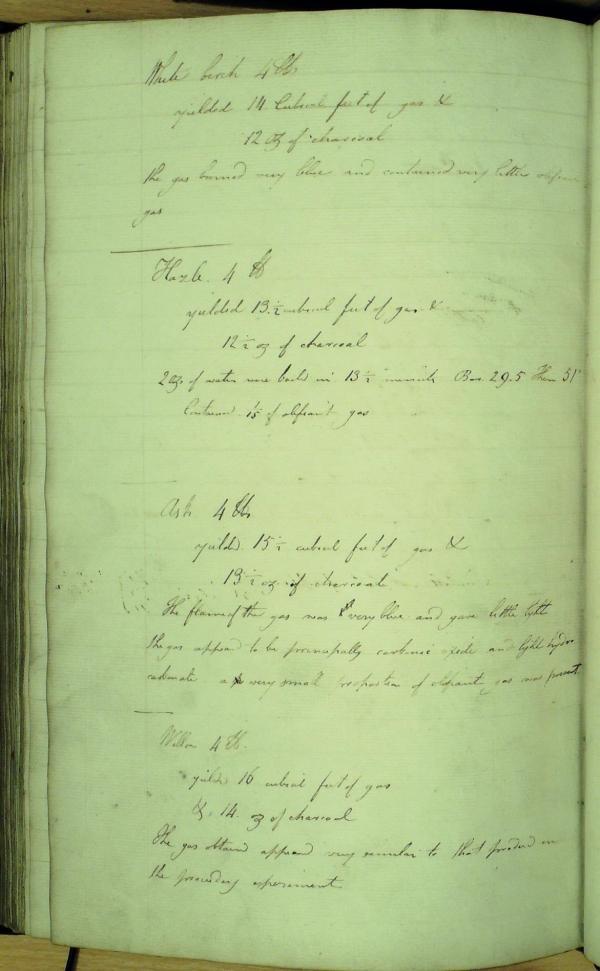 White birch 4 lbs
yielded 14 Cubical feet of gas &
12 oz of charcoal
the gas burned very blue and contained very little olefiant
gas
Hazle 4 lb
yielded 13 1/2 cubical feet of gas &
12 1/2 oz of charcoal
2 oz of water were boild in 13 1/2 minuits Bar. 29.5 Ther 51°
Contained 1/5 of olefiant gas
Ash 4 lbs
yielded 15 1/2 cubical feet of gas &
13 1/2 oz of charcoal
The flame of the gas was very blue and gave little light
the gas appeard to be principally carbonic oxide and light hydro
carbonate a very small proportion of olefiant gas was present
Willow 4 lb.
yields 16 cubical feet of gas
& 14. oz of charcoal
The gas obtaind appeard very similar to that produced in
the preceeding experiment